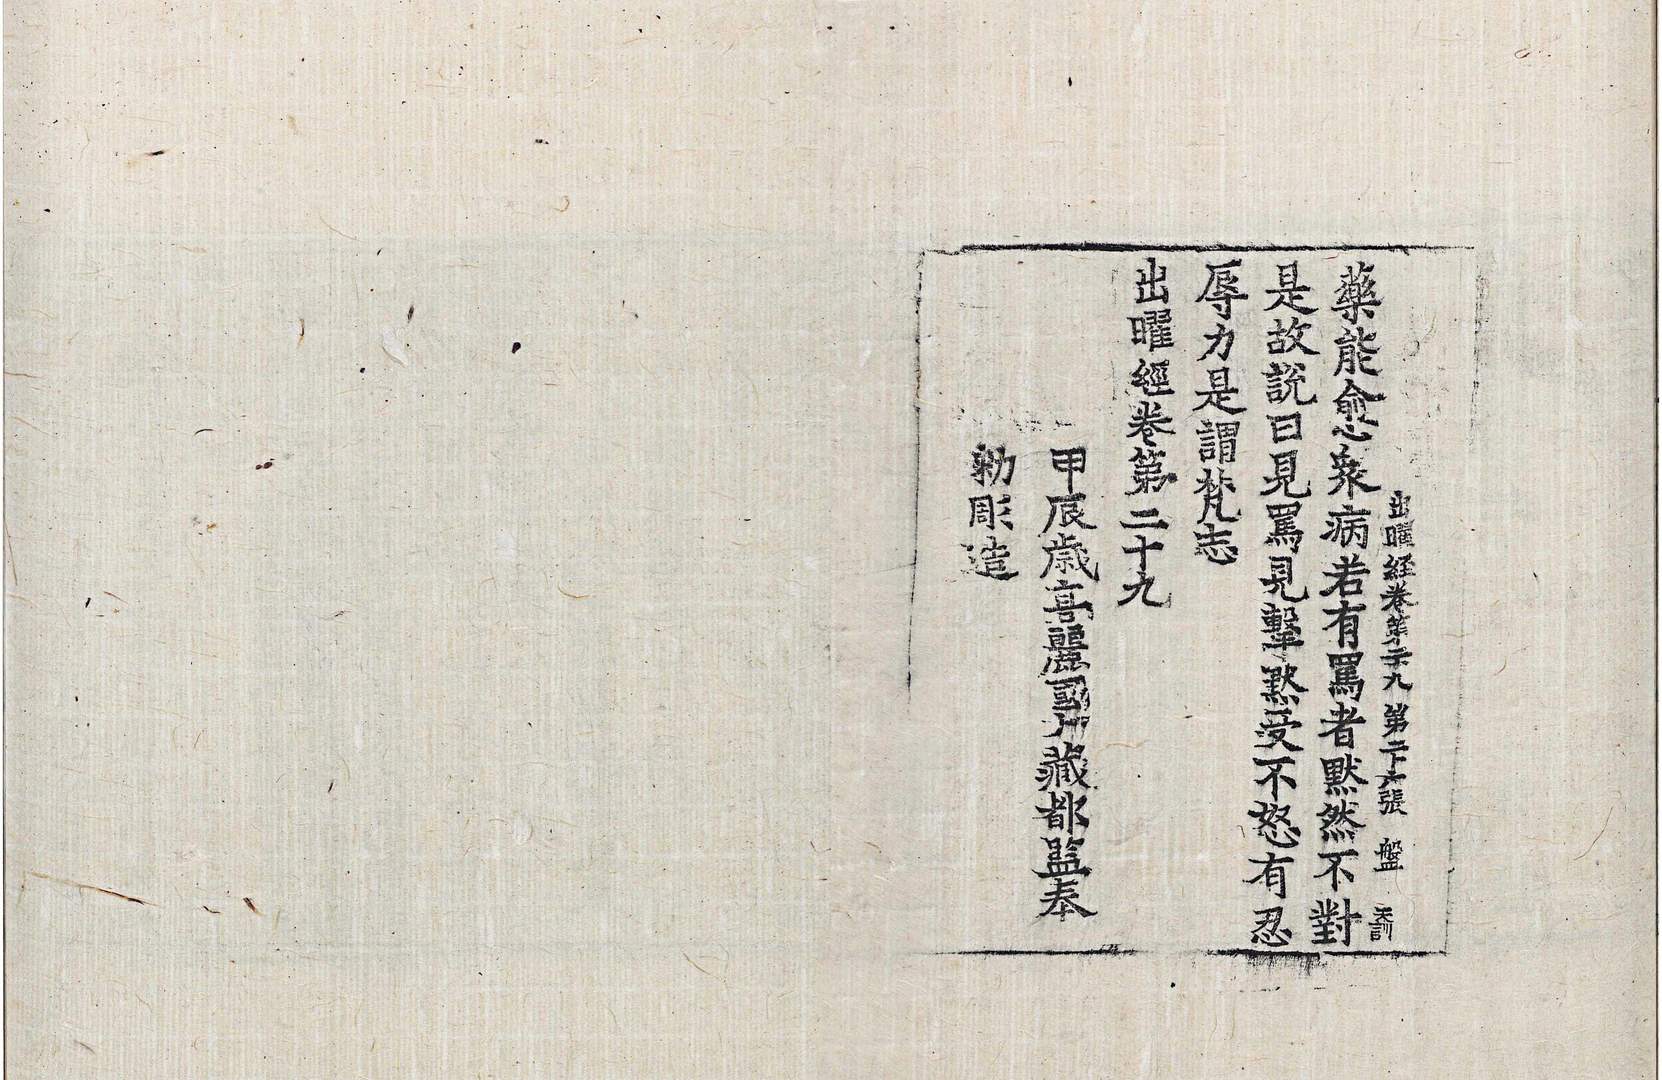 出曜経卷第二十九 第二十六張 盤 天訓
藥能愈衆病若有罵者默然不對
是故說曰見罵見擊默受不怒有忍
辱力是謂梵志
出曜經卷第二十九
甲辰歳高麗國大藏都監奉
勑彫造